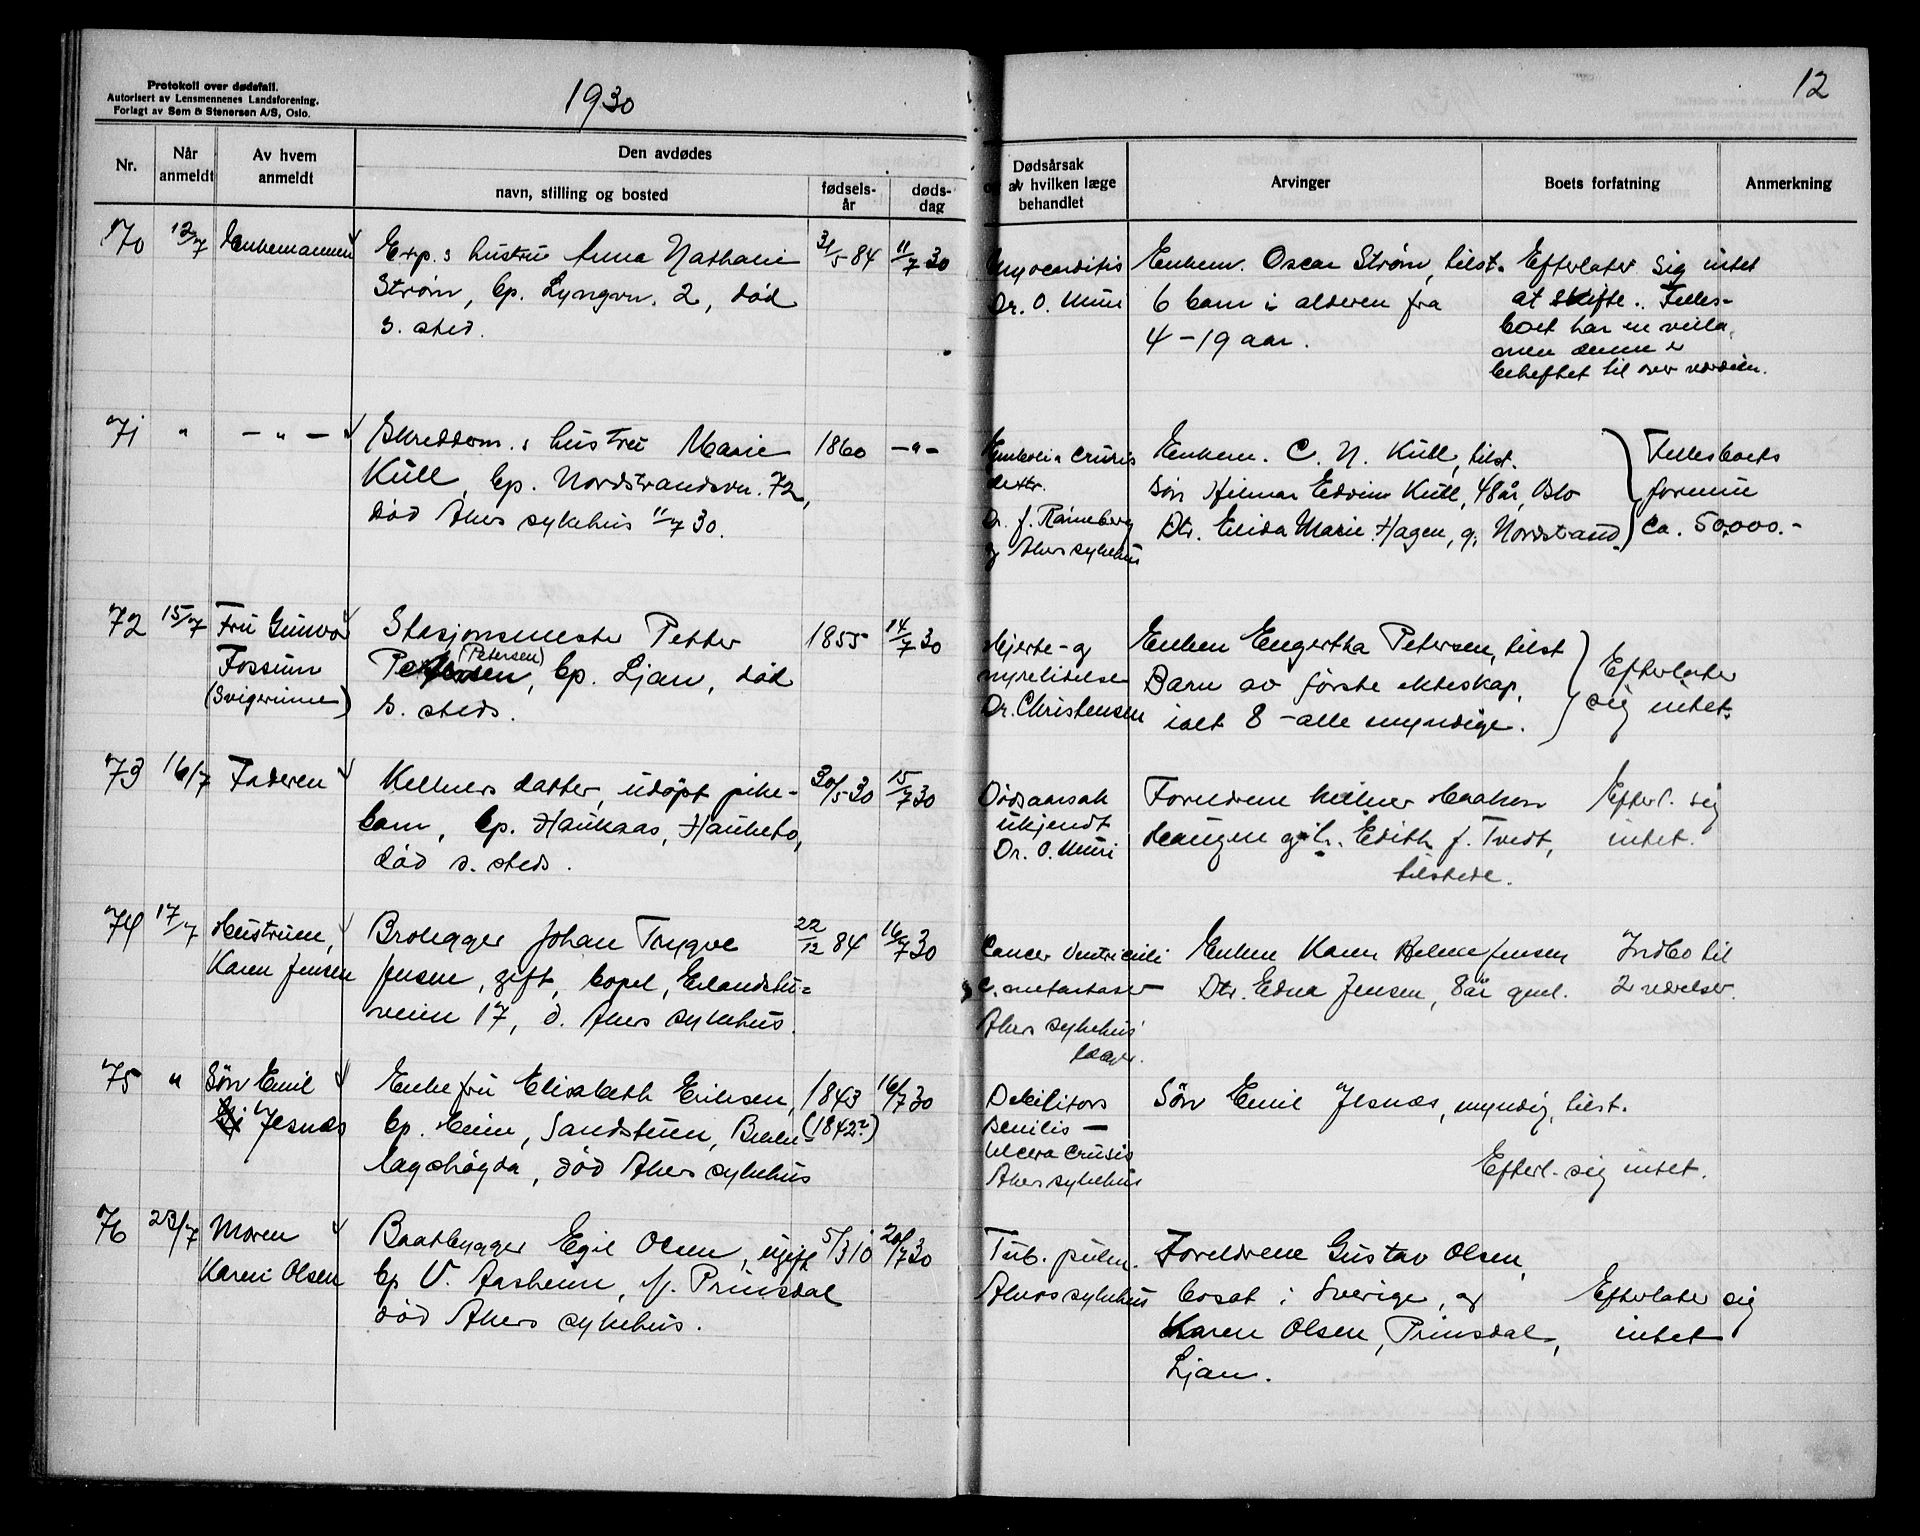 Protokoll over dødsfall.
Autorisert av Lensmennenes Landsforening.
Forlagt av Sem & Stenersen A/S, Oslo.
1930
Nr.
Når anmeldt
Av hvem anmeldt
Den avdødes
navn, stilling og bosted
fødsels-år
døds-dag
70 12/7 Enkemannen
Exp.s hustru Anna Nathalie
Strøm, bp. Lyngvn. 2, død
s. sted.
31/5 84
11/7 30
71 " — " —
Skreddem.s hustru Marie
Kull, bp. Nordstrandsvn. 72,
død Akers sykehus 11/7 30.
1860
—"—
72 15/7 Fru Gunvor
Fossum
(Svigerinne)
Stasjonsmester Petter
(Petersen)
Petersen, bp. Ljan, død
s. steds.
1855
14/7 30
73 16/7 Faderen
Kelners datter, udøpt pike-
barn, bp. Haukaas, Hauketo,
død s. steds.
30/5 30
15/7 30
74 17/7 Hustruen,
Karen Jensen
Brolegger Johan Trygve
Jensen, gift, bopel, Erlandstu-
veien 17, d. Akers sykehus.
22/12 84
16/7 30
75 " Søn Emil
Jesnæs
Enkefru Elisabeth Eriksen,
bp. Heim, Sandstuen, Bekke-
lagshøgda, død Akers sykehus
1843
(1842?)
16/7 30
76 23/7 Moren
Karen Olsen
Baatbygger Egil Olsen, ugift
bp V. Aasheim, Prinsdal
død Akers sykehus.
5/3 10
20/7 30
12
Dødsårsak
og av hvilken læge
behandlet
Arvinger
Boets forfatning
Anmerkning
Myocarditis
Dr. O. Muri
Enkem. Oscar Strøm, tilst.
6 barn i alderen fra
4 – 19 aar.
Efterlater sig intet
at skifte. Felles-
boet har en villa,
men denne er
beheftet til over værdien.
Embolia cruris
dextr.
Dr. J. Ramberg
og Akers sykehus
Enkem. C. N. Kull, tilst.
Søn Hilmar Edvin Kull, 48 år, Oslo
Dtr. Elida Marie Hagen, g, Nordstrand.
Fellesboets
formue
ca. 50,000.-
Hjerte- og
nyrelidelse
Dr. Christensen
Enken Engertha Petersen, tilst
Barn av første ekteskap,
ialt 8 – alle myndige.
Efterlater
sig intet.
Dødsaarsak
ukjendt
Dr. O. Muri
Foreldrene kelner Haakon
Haugen g. Edith f. Tvedt,
tilstede.
Efterl. sig
intet.
Cancer Ventriculi
c. metastaser
Akers sykehus
Enken Karen Helene Jensen
Dtr. Edna Jensen, 8 år gml.
Indbo til
2 værelser.
Debilitas
senilis —
Ulcera cruris
Akers sykehus
Søn Emil Jesnæs, myndig, tilst.
Efterl. sig intet.
Tub. pulm.
Akers sykehus
Foreldrene Gustav Olsen,
bosat i Sverige, og
Karen Olsen, Prinsdal,
Ljan.
Efterlater sig
intet